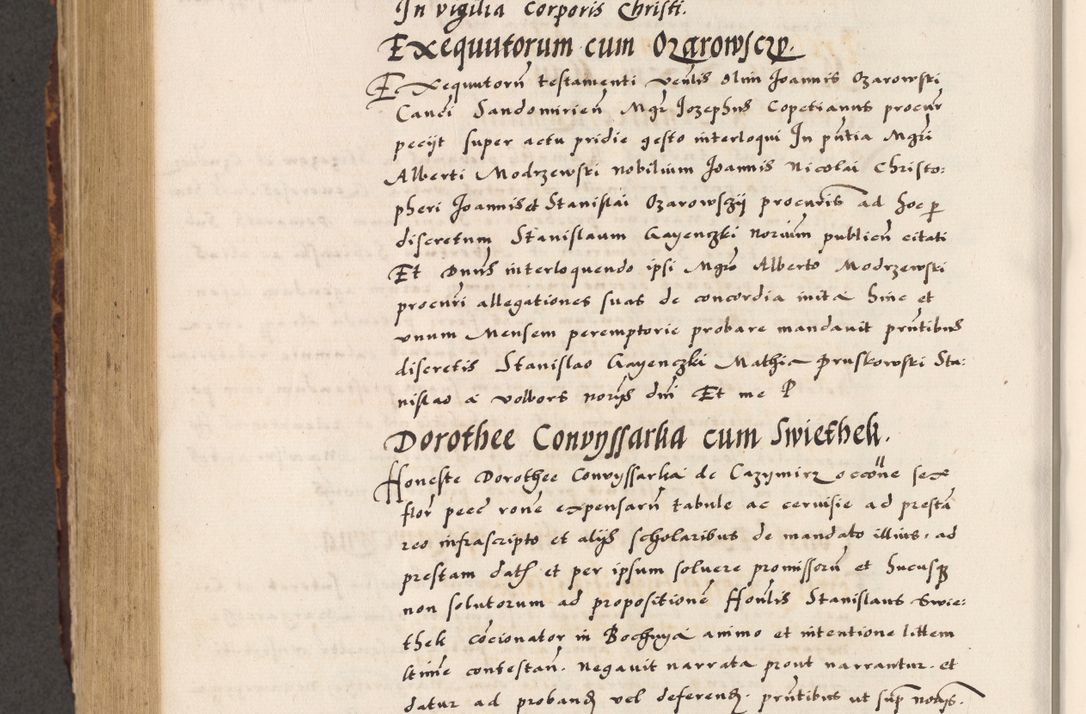 In vigilia Corporis Christi.
Exequutorum cum Ozarowscy.
Exequutorũ testamenti veñlis olim Joannis Ozarowski
Canci Sandomirieñ Mgr Jozephus Copetianus procur
peciit super actu pridie gesto interloqui In pñtia Mgri
Alberti Modrzewski nobilium Joannis Nicolai Christo:
pheri Joannis et Stanislai Ozarowscij procuris ad hoc p
discretum Stanislaum Gayenczki norium publicũ citati
Et Dnus interloquendo ipsi Mgro Alberto Modrzewski
procuri allegationes suas de concordia inita hinc et
unum Mensem peremptorie probare mandavit pñtibus
discretis Stanislao Gayenczki Mathia Pruskowski Sta:
nislao a Volbors norijs dni Et me P
Dorothee Convyssarka cum Swiethek.
Honeste Dorothee Convyssarka de Cazymirz occõne sex
flor pecc rõne expensarũ tabule ac cervisie ad prestã
reo infrascripto et alijs scholaribus de mandato illius, ad
prestam dath et per ipsum solvere promissorũ et hucusq
non solutorum ad propositionẽ Hoñlis Stanislaus Swie:
thek cõcionator in Bochnya animo et intentione littem
ltime contestañ. negavit narrata prout narrantur. et
datur ad proband vel deferend. pñtibus ut sup norijs.